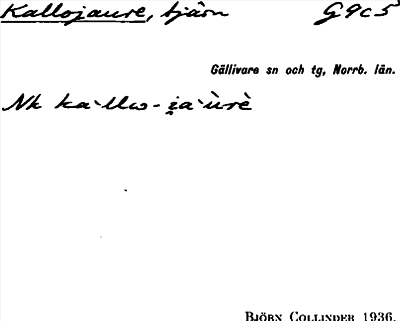 Kallojaure, tjärn G9c5
Gällivare sn och tg, Norrb. län.
Nk ka`llω-i̯a`ùrè
BJÖRN COLLINDER 1936.